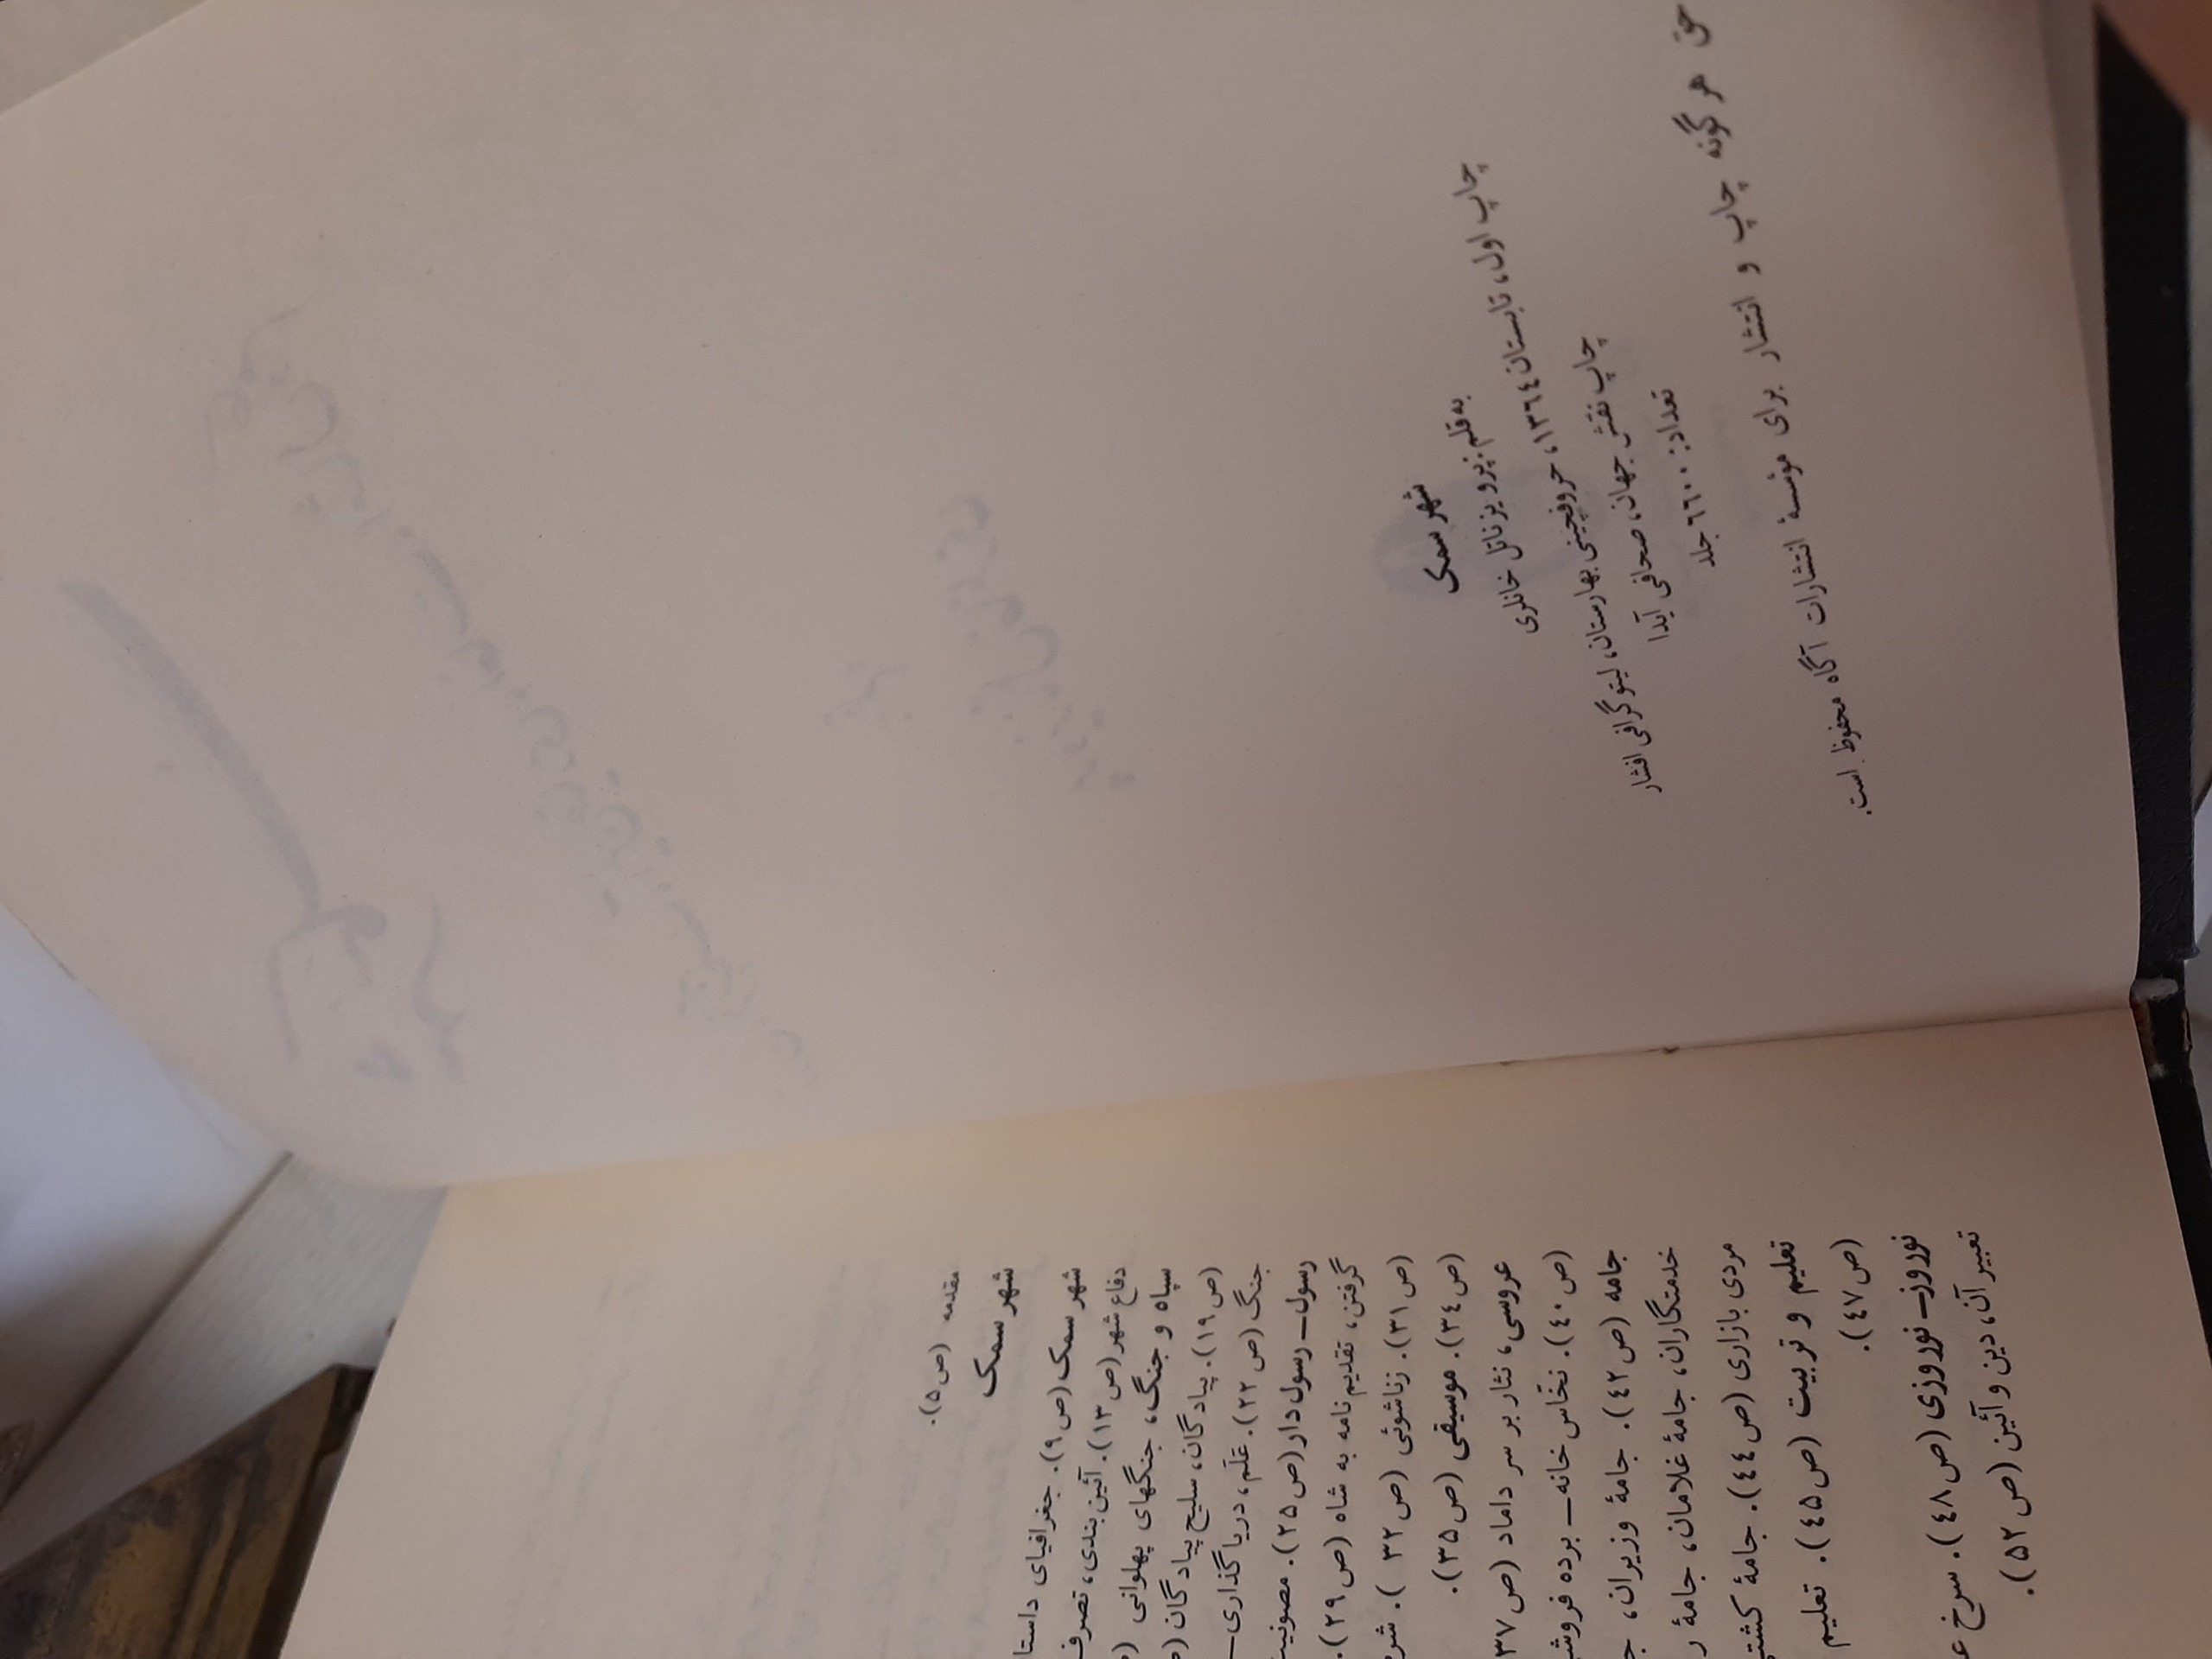 شهر سمک
به قلم: پرویز ناتل خانلری
چاپ اول، تابستان ۱۳٦٤، حروفچینی بهارستان، لیتوگرافی افشار
چاپ نقش جهان، صحافی آیدا
تعداد: ٦٦۰۰ جلد
حق هرگونه چاپ و انتشار برای مؤسسهٔ انتشارات آگاه محفوظ است.
مقدمه (ص ۵).
شهر سمک
شهر سمک (ص ۹). جغرافیای
دفاع شهر (ص ۱۳). آئین‌بندی، تصرف
سپاه و جنگ، جنگهای پهلوانی
(ص ۱۹). پیادگان، سلیح پیادگان
جنگ (ص ۲۲). عَلَم، دریا گذاری —
رسول — رسول دار (ص ۲۵).
گرفتن، تقدیم نامه به شاه (ص ۲۹).
(ص ۳۱). زناشوئی (ص ۳۲ ).
(ص ۳٤). موسیقی (ص ۳۵).
عروسی، نثار بر سر داماد (ص ۳۷
(ص ٤۰). نخّاس خانه — برده
جامه (ص ٤۲). جامهٔ وزیران،
خدمتگاران، جامهٔ غلامان، جامهٔ
مردی بازاری (ص ٤٤). جامهٔ
تعلیم و تربیت (ص ٤۵). تعلیم
(ص ٤۷).
نوروز — نوروزی (ص ٤۸). سرخ
تعبیر آن، دین و آئین (ص ۵۲).